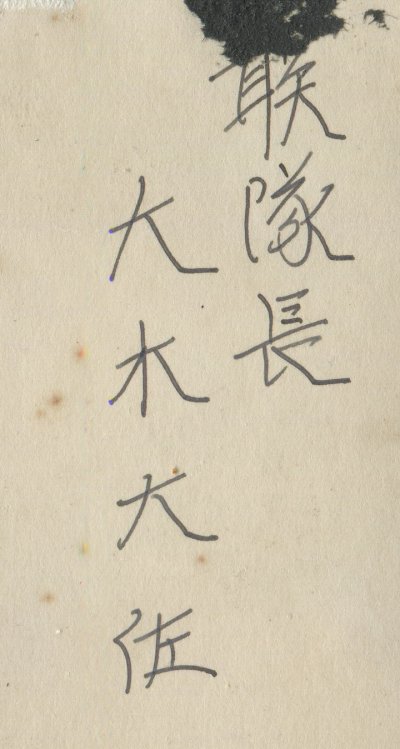 聨隊長
大木大佐